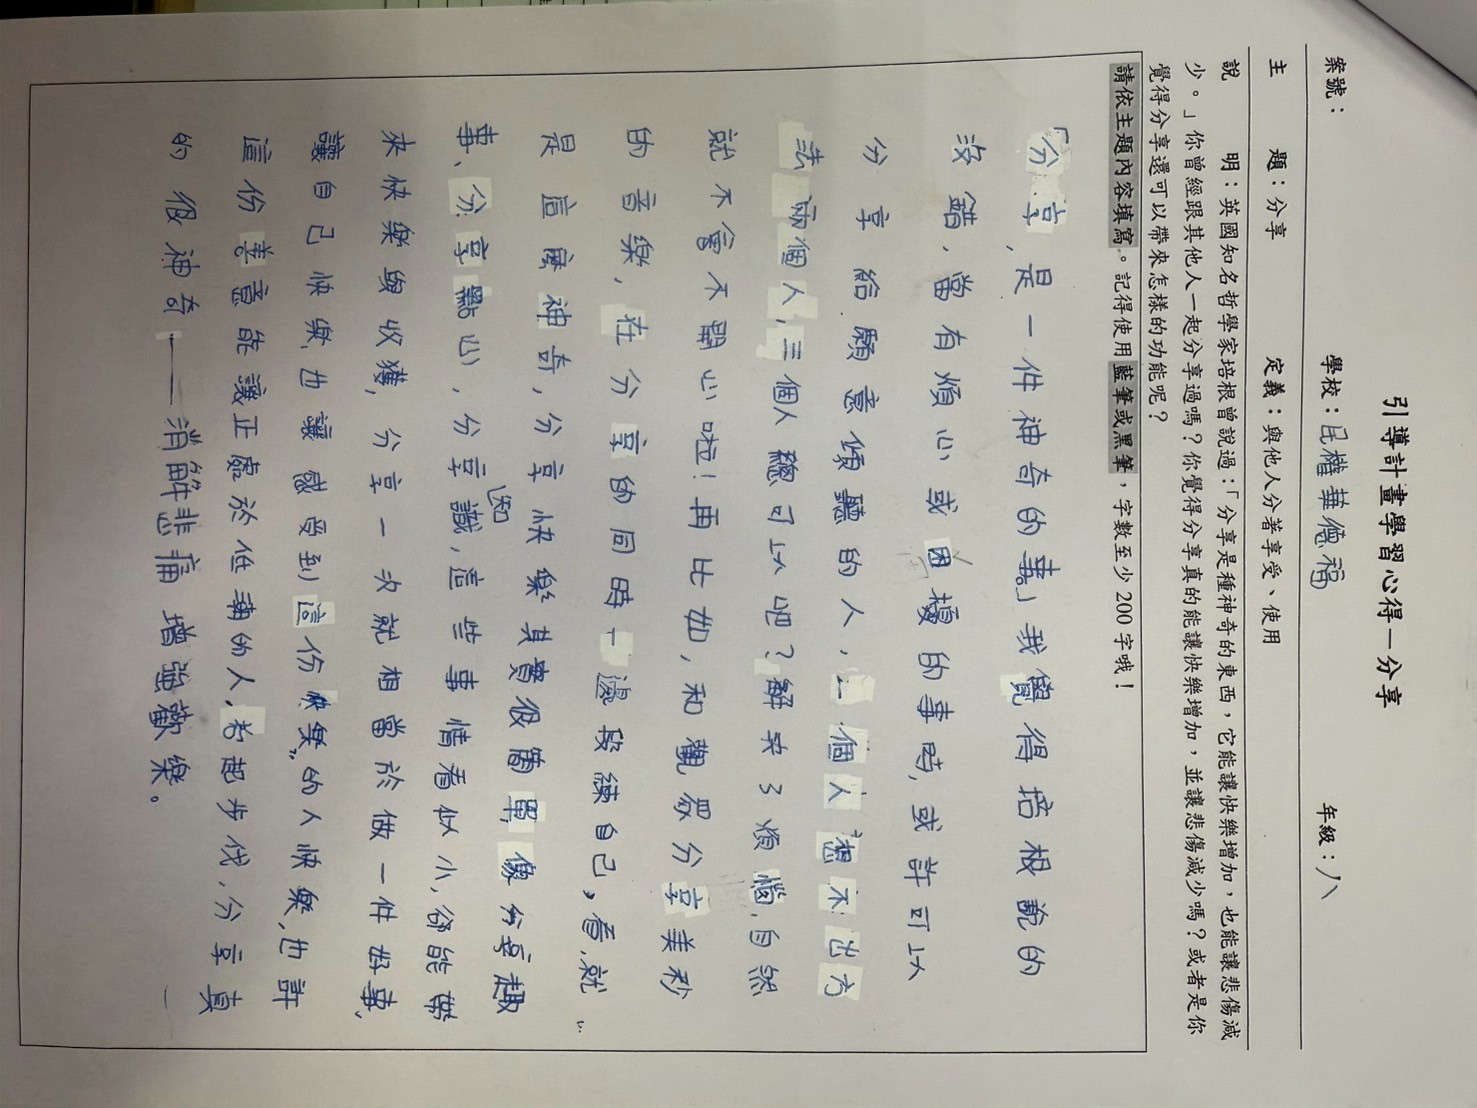 引導計畫學習心得－分享
案號： 學校：民權華德福 年級：八
主 題：分享 定義：與他人分著享受、使用
說 明：英國知名哲學家培根曾說過：「分享是種神奇的東西，它能讓快樂增加，也能讓悲傷減
少。」你曾經跟其他人一起分享過嗎？你覺得分享真的能讓快樂增加，並讓悲傷減少嗎？或者是你
覺得分享還可以帶來怎樣的功能呢？
請依主題內容填寫。記得使用藍筆或黑筆，字數至少200字哦！
「分享，是一件神奇的事。」我覺得培根說的
沒錯，當有煩心或困擾的事時，或許可以
分享給願意傾聽的人，一個人想不出方
法，兩個人，三個人總可以吧？解決了煩惱，自然
就不會不開心啦！再比如，和觀眾分享美秒
的音樂，在分享的同時，一邊段練自己，看，就
是這麼神奇，分享快樂其實很簡單，像分享趣
事、分享點心，分享知識，這些事情看似小，卻能帶
來快樂與收獲，分享一次就相當於做一件好事，
讓自己快樂，也讓感受到這份“快樂”的人快樂，也許
這份善意能讓正處於低潮的人，抬起步伐，分享真
的很神奇——消解悲痛增強歡樂。